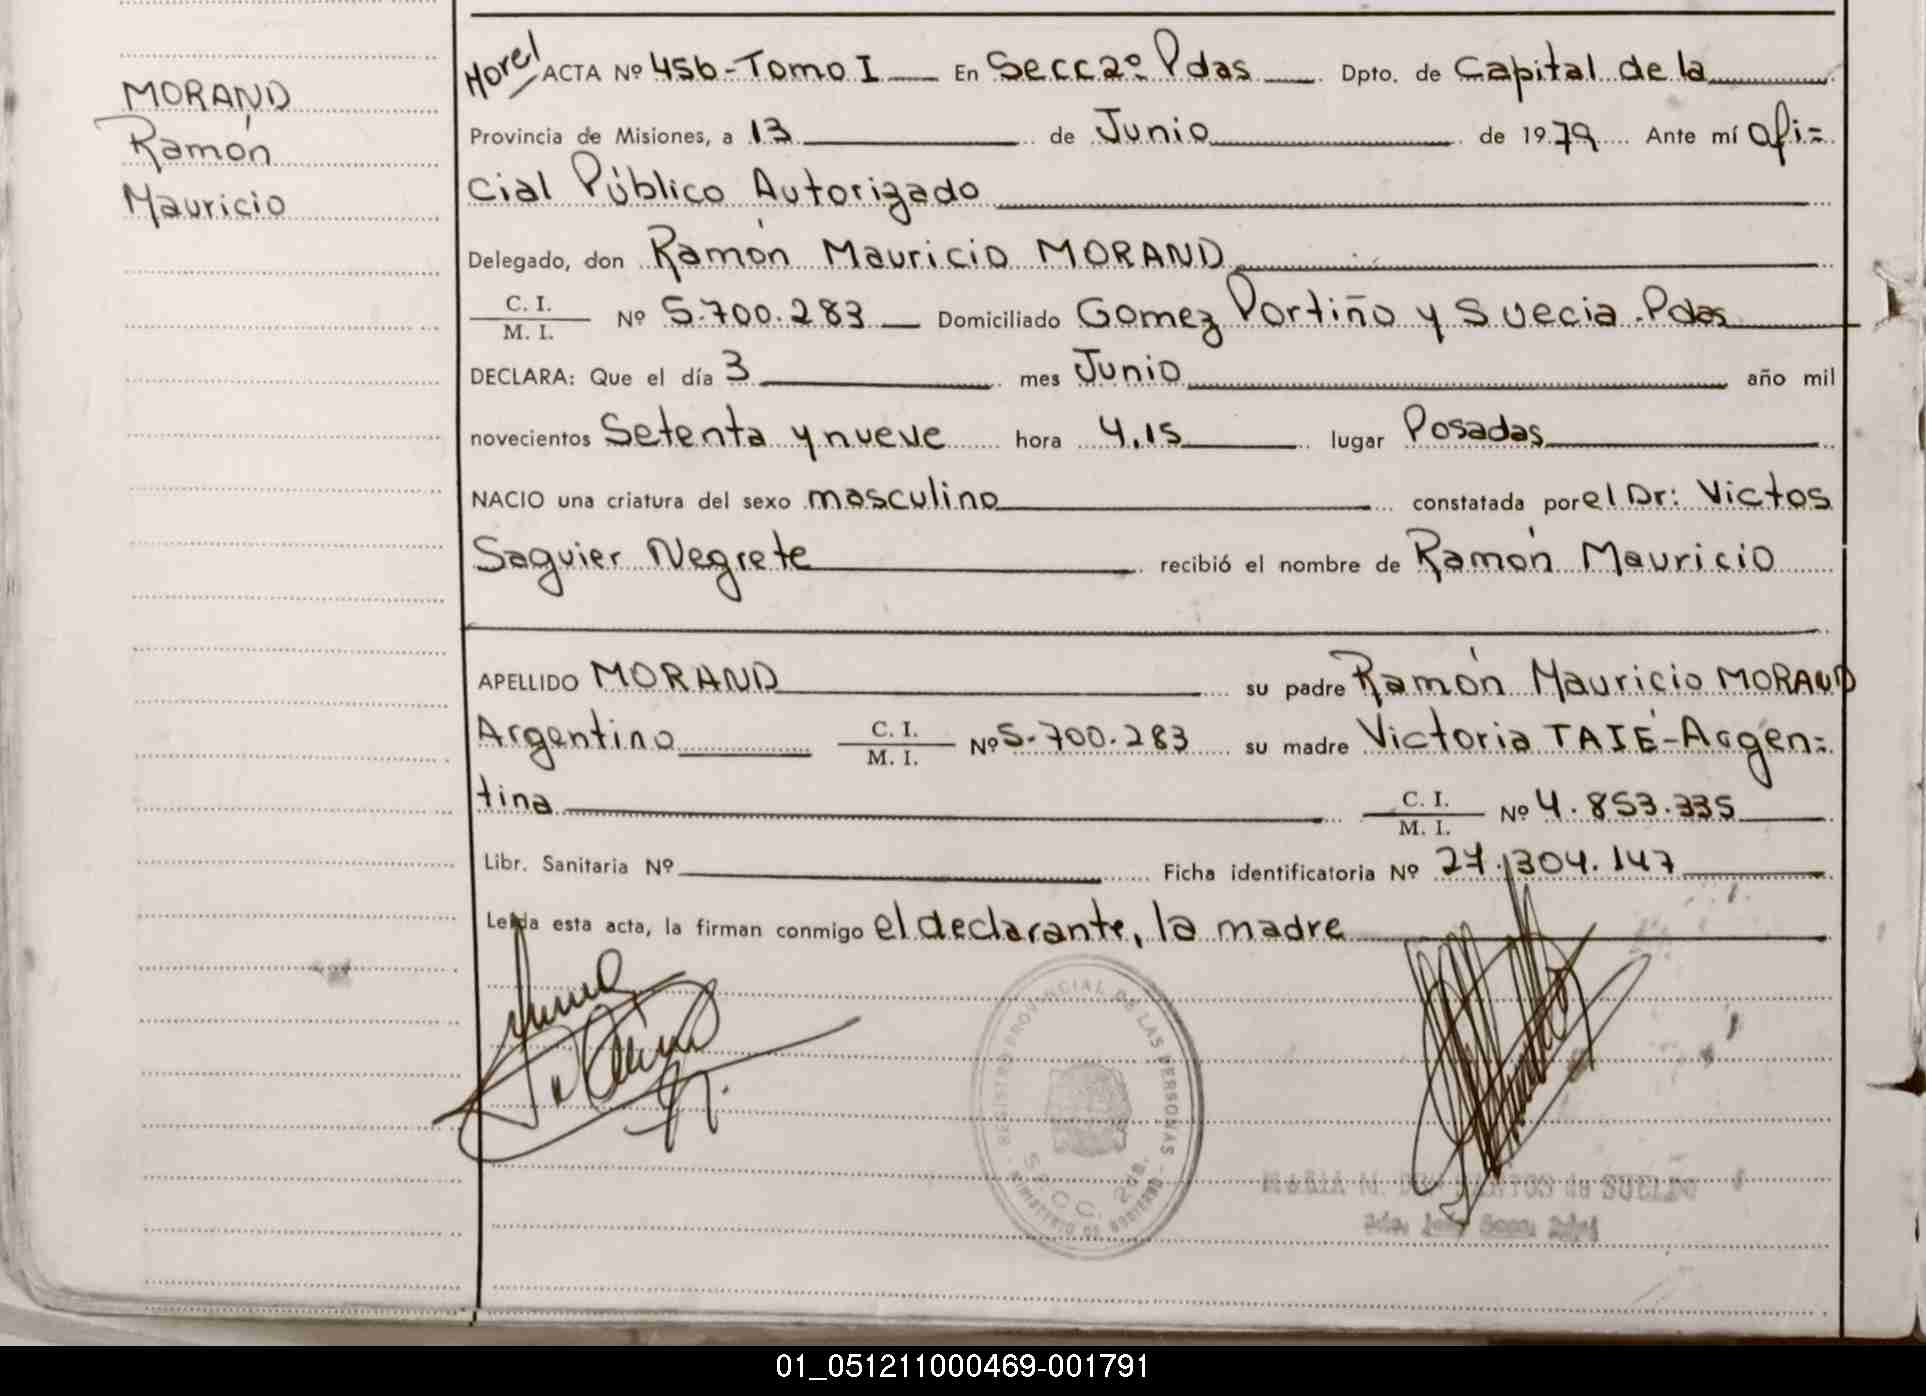 MORAND
Ramón
Mauricio
ACTA Nº 456-Tomo I En Secc 2º Pdas Dpto. de Capital de la
Provincia de Misiones, a 13 de Junio de 1979 Ante mí ofi=
cial Público Autorizado
Delegado, don Ramón Mauricio MORAND
C. I.
M. I. Nº 5.700.283 Domiciliado Gomez Portiño y Suecia.Pdas
DECLARA: Que el día 3 mes Junio año mil
novecientos Setenta y nueve hora 4,15 lugar Posadas
NACIO una criatura del sexo masculino constatada por el Dr: Victos
Saguier Negrete recibió el nombre de Ramón Mauricio
APELLIDO MORAND su padre Ramón Mauricio MORAND
Argentino C. I.
M. I. Nº 5.700.283 su madre Victoria TAIÉ-Argen=
tina C. I.
M. I. Nº 4.853.335
Libr. Sanitaria Nº Ficha identificatoria Nº 27.304.147
Leída esta acta, la firman conmigo el declarante, la madre
REGISTRO PROVINCIAL DE LAS PERSONAS
SECC. 2da.
MINISTERIO DE GOBIERNO
01_051211000469-001791